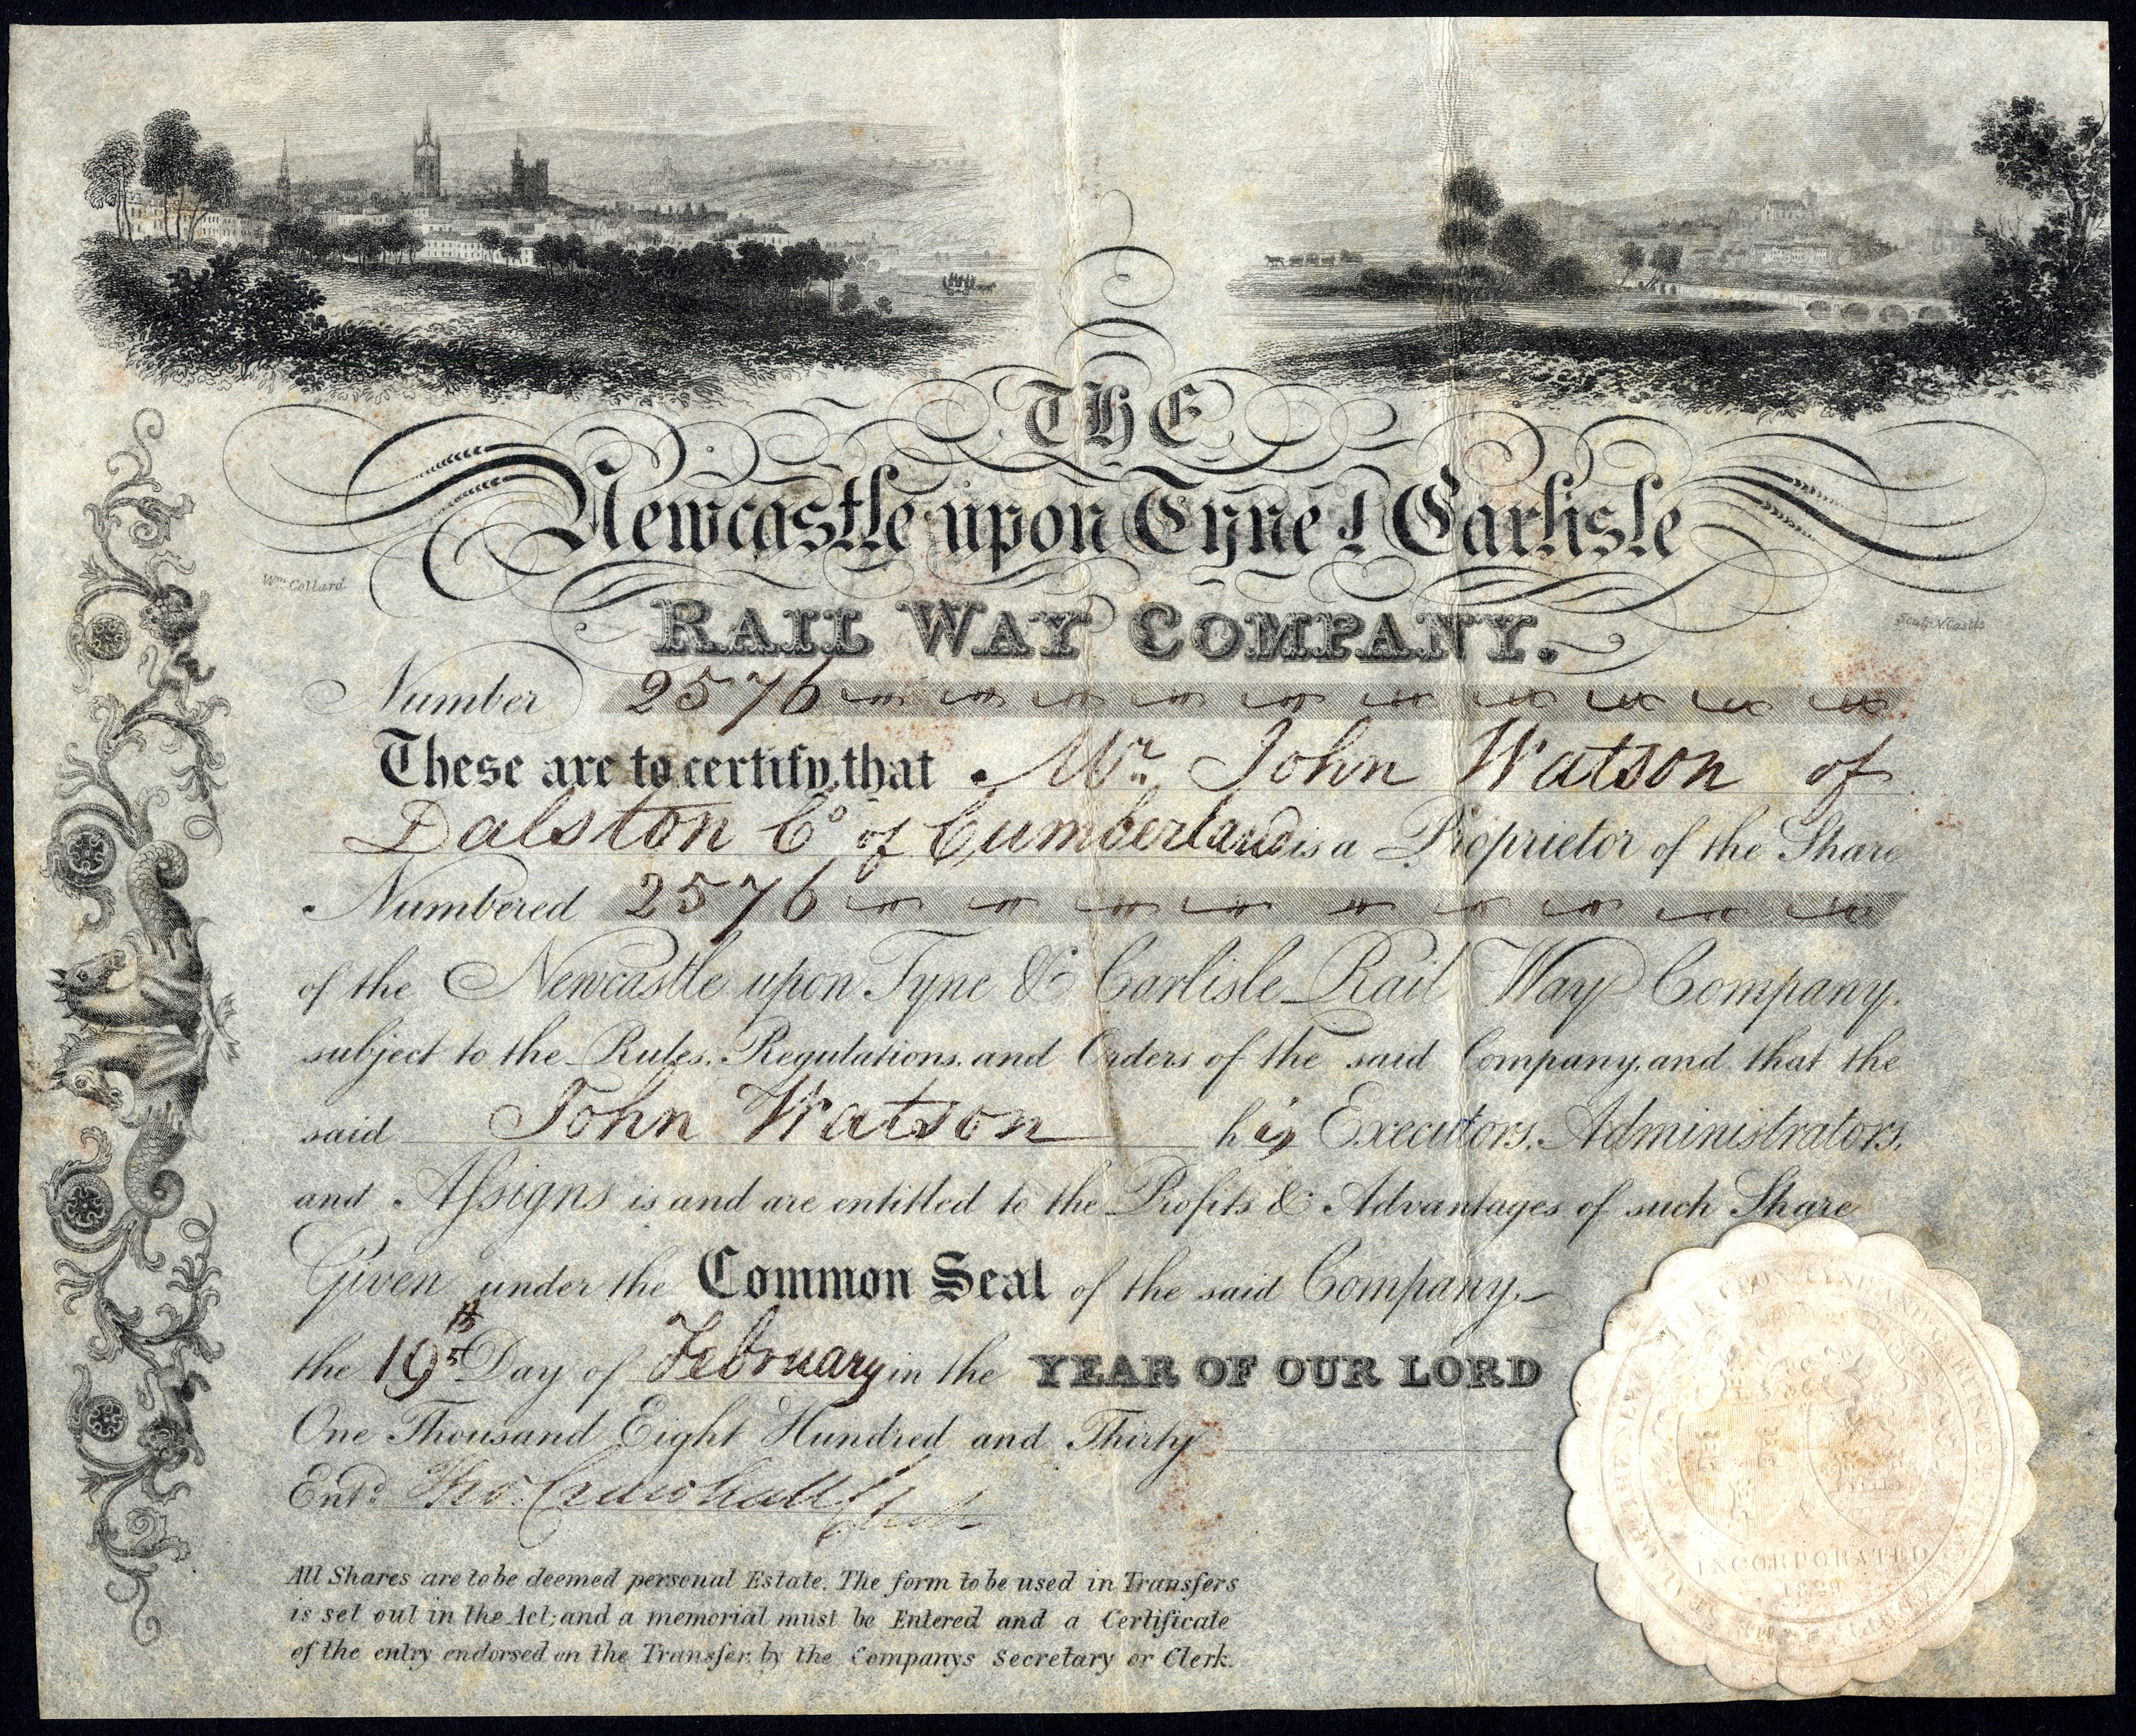 THE
Newcastle upon Tyne & Carlisle
Wm. Collard
Sculp. N.Castle
RAIL WAY COMPANY.
Number 2576
These are to certify, that Mr. John Watson of
Dalston Co. of Cumberland is a Proprietor of the Share
Numbered 2576
of the Newcastle upon Tyne & Carlisle Rail Way Company,
subject to the Rules, Regulations, and Orders, of the said Company, and that the
said John Watson his Executors, Administrators,
and Assigns is and are entitled to the Profits & Advantages of such Share
Given under the Common Seal of the said Company,
the 19th Day of February in the YEAR OF OUR LORD
One Thousand Eight Hundred and Thirty
Entd. Tho. Crawhall Clerk
INCORPORATED
1829
All Shares are to be deemed personal Estate. The form to be used in Transfers
is set out in the Act; and a memorial must be Entered and a Certificate
of the entry endorsed on the Transfer, by the Companys Secretary or Clerk.